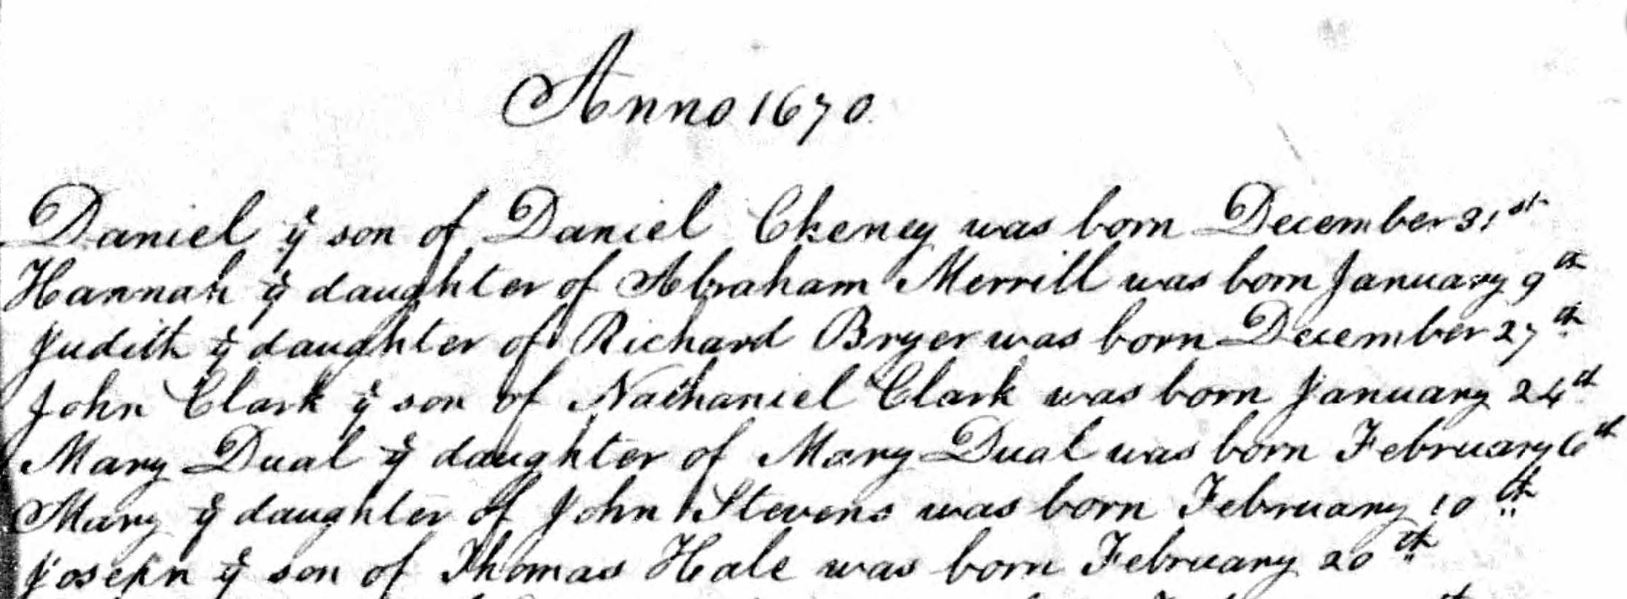 Anno 1670.
Daniel yͤ son of Daniel Cheney was born December 31st
Hannah yͤ daughter of Abraham Merrill was born January 9th
Judith yͤ daughter of Richard Bryer was born December 27th
John Clark yͤ son of Nathaniel Clark was born January 24th
Mary Dual yͤ daughter of Mary Dual was born February 6th
Mary yͤ daughter of John Stevens was born February 10th
Joseph yͤ son of Thomas Hale was born February 20th